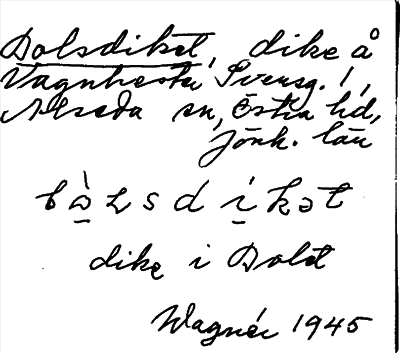 Bolsdiket, dike å
Vagnhester Svensg. 1,
Alseda sn, Östra hd,
Jönk. län
bàʟsdíkət
dike i Bolet
Wagnér 1945